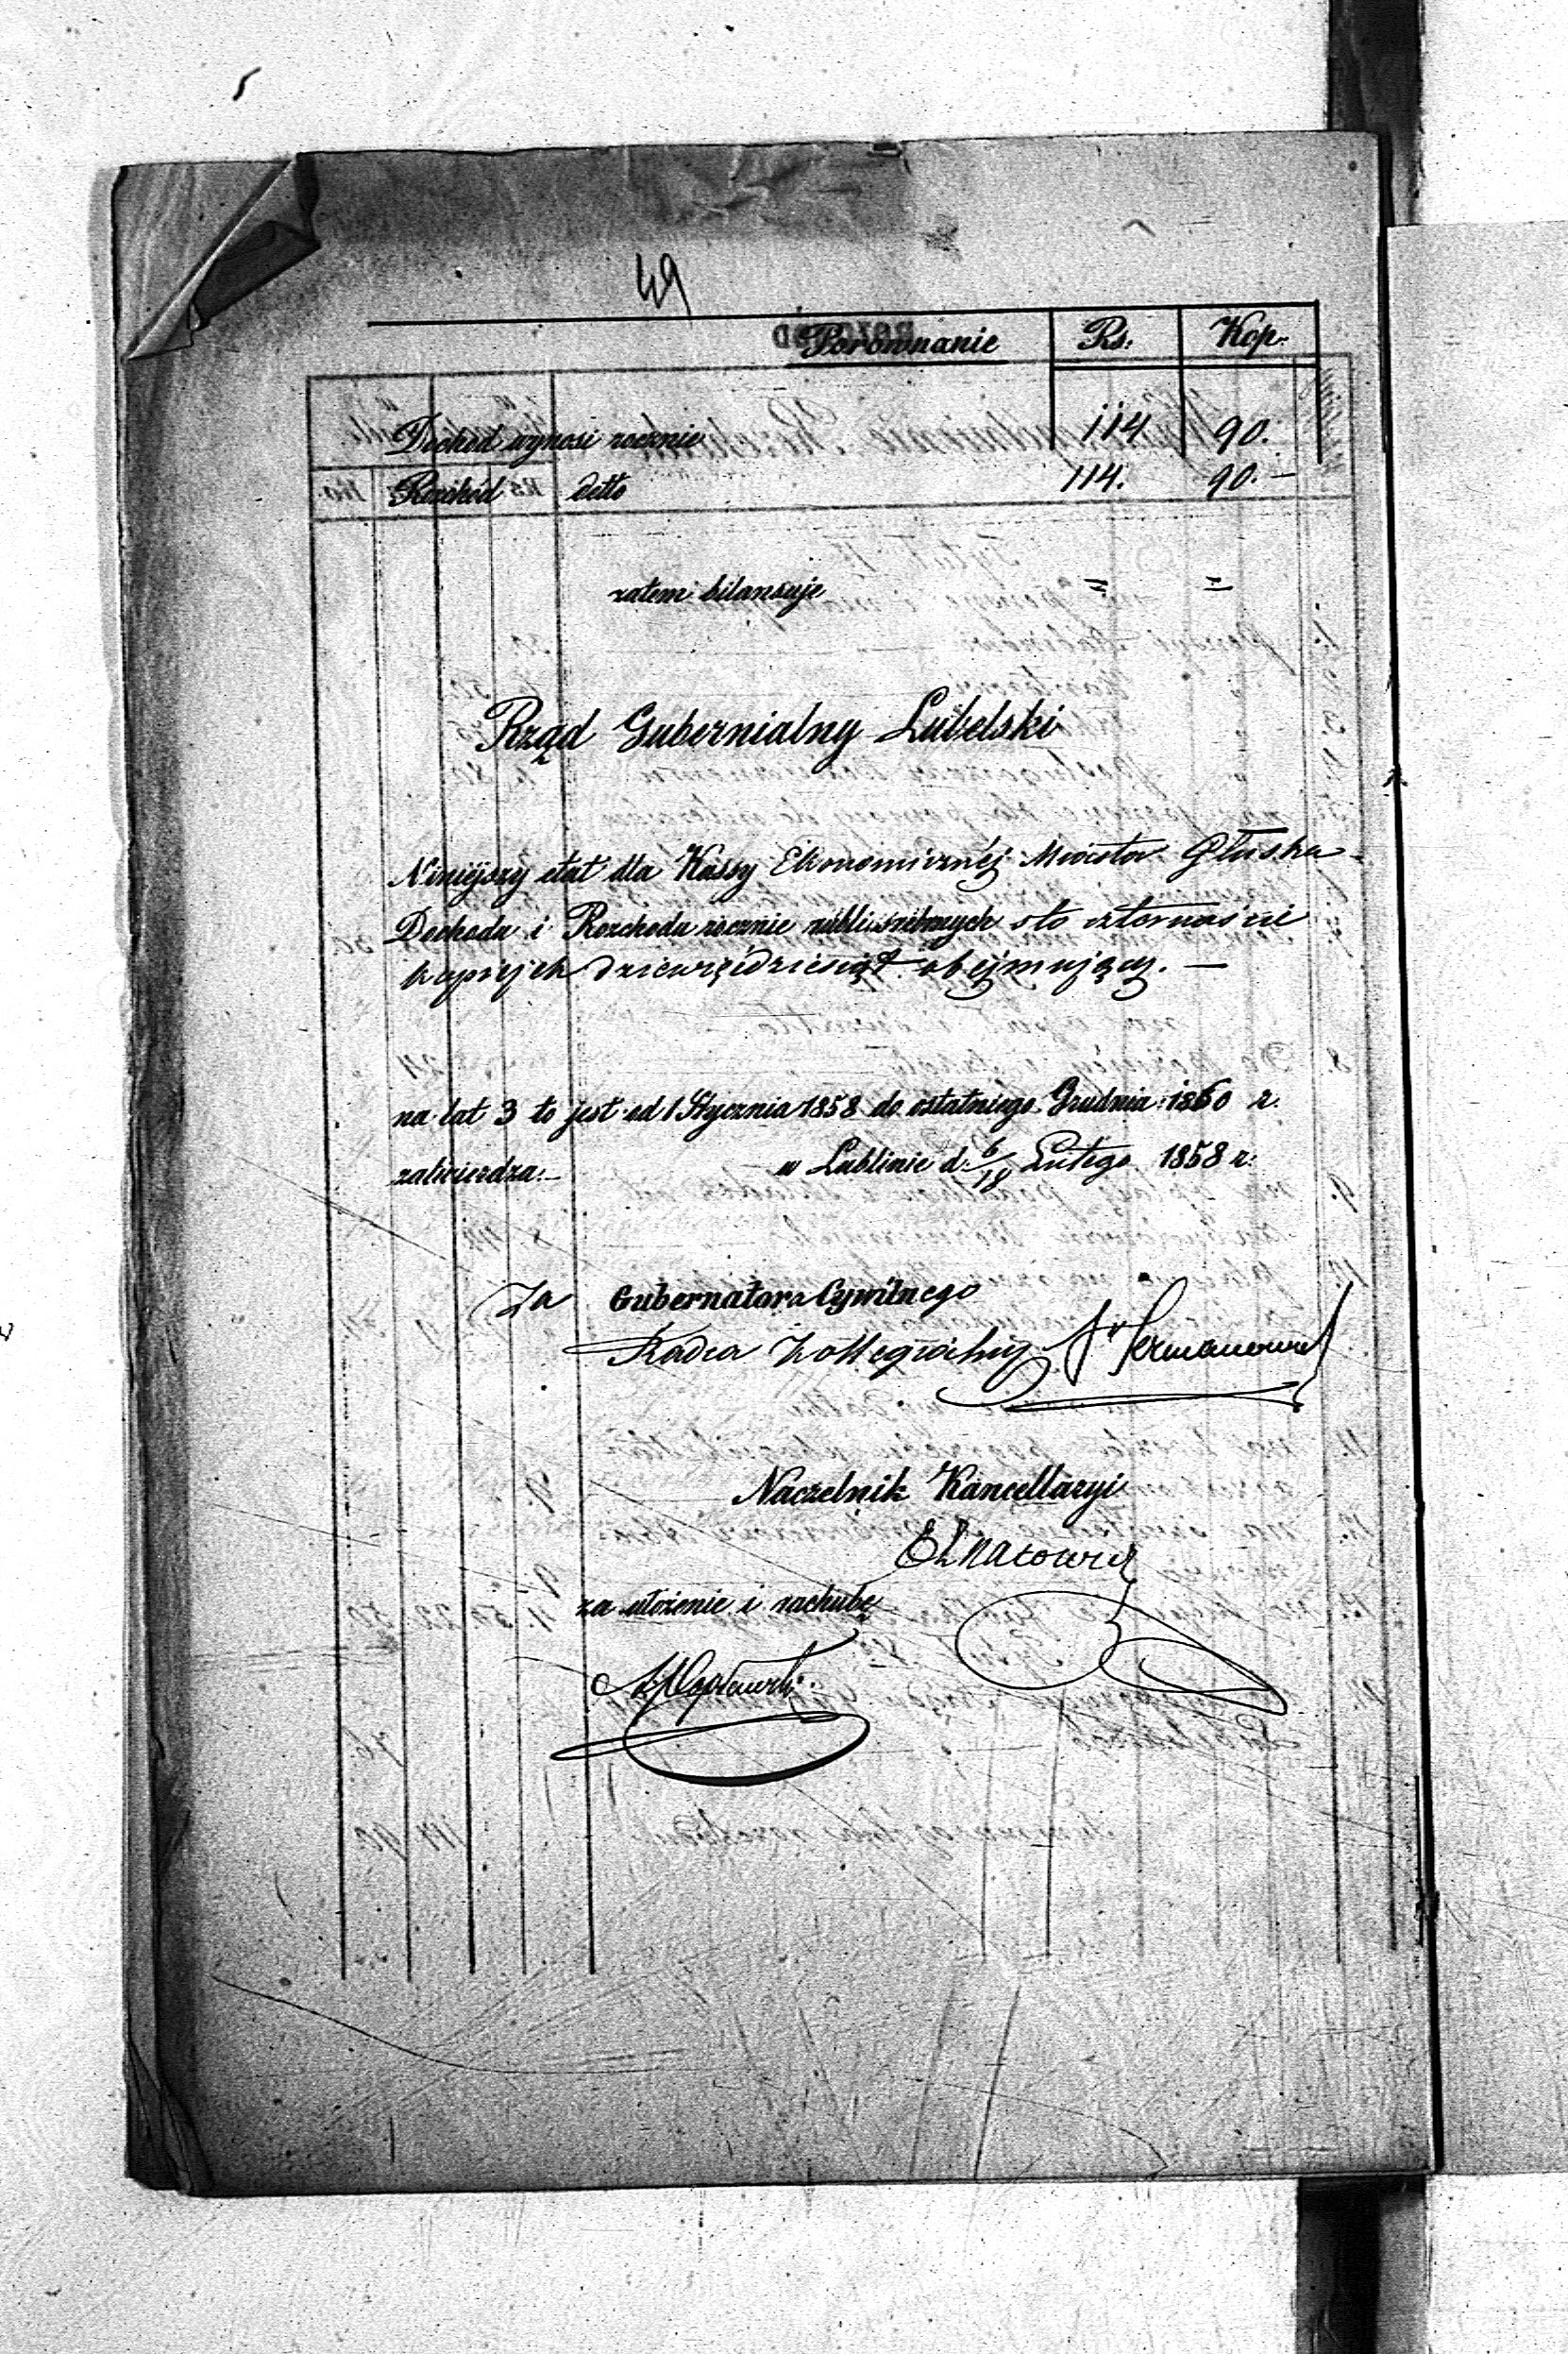 49
Porównanie Rs: Kop:
Dochód wynosi rocznie 114 90.
Rozchód detto 114. 90. —
zatem bilansuje = =
Rząd Gubernialny Lubelski
Niniéjszy etat dla Kassy Ekonomicznéj Miasta Głuska
Dochodu i Rozchodu rocznie rubli srebrnych sto czternaście
kopiejek dziewięćdziesiąt obejmujący. —
na lat 3 to jest od 1 Stycznia 1858 do ostatniego Grudnia 1860 r.
zatwierdza. — w Lublinie d. 6/18 Lutego 1858 r.
Za Gubernatora Cywilnego
Radca Kollegialny
Naczelnik Kancellaryi
za ułożenie i rachubę